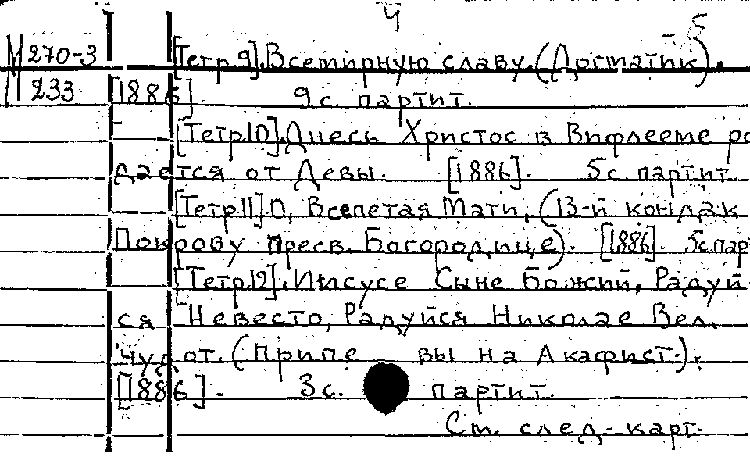 4 5
М 270-3 [Тетр.9]. Всемирную славу. (Догматик).
П 233 [1886] 9 с. партит.
[Тетр.10]. Днесь Христос в Вифлееме ро
дается от Девы. [1886]. 5 с. партит.
[Тетр.11] О, Всепетая Мати, (13-й кондак
Покрову пресв. Богородице). [1886]. 5 с. парт
[Тетр.12]. Иисусе Сыне Божий, Радуй
ся Невесто, Радуйся Николае Вел.
Чудот. (Припе вы на Акафист.).
[1886]. 3 с. партит.
См. след. карт.